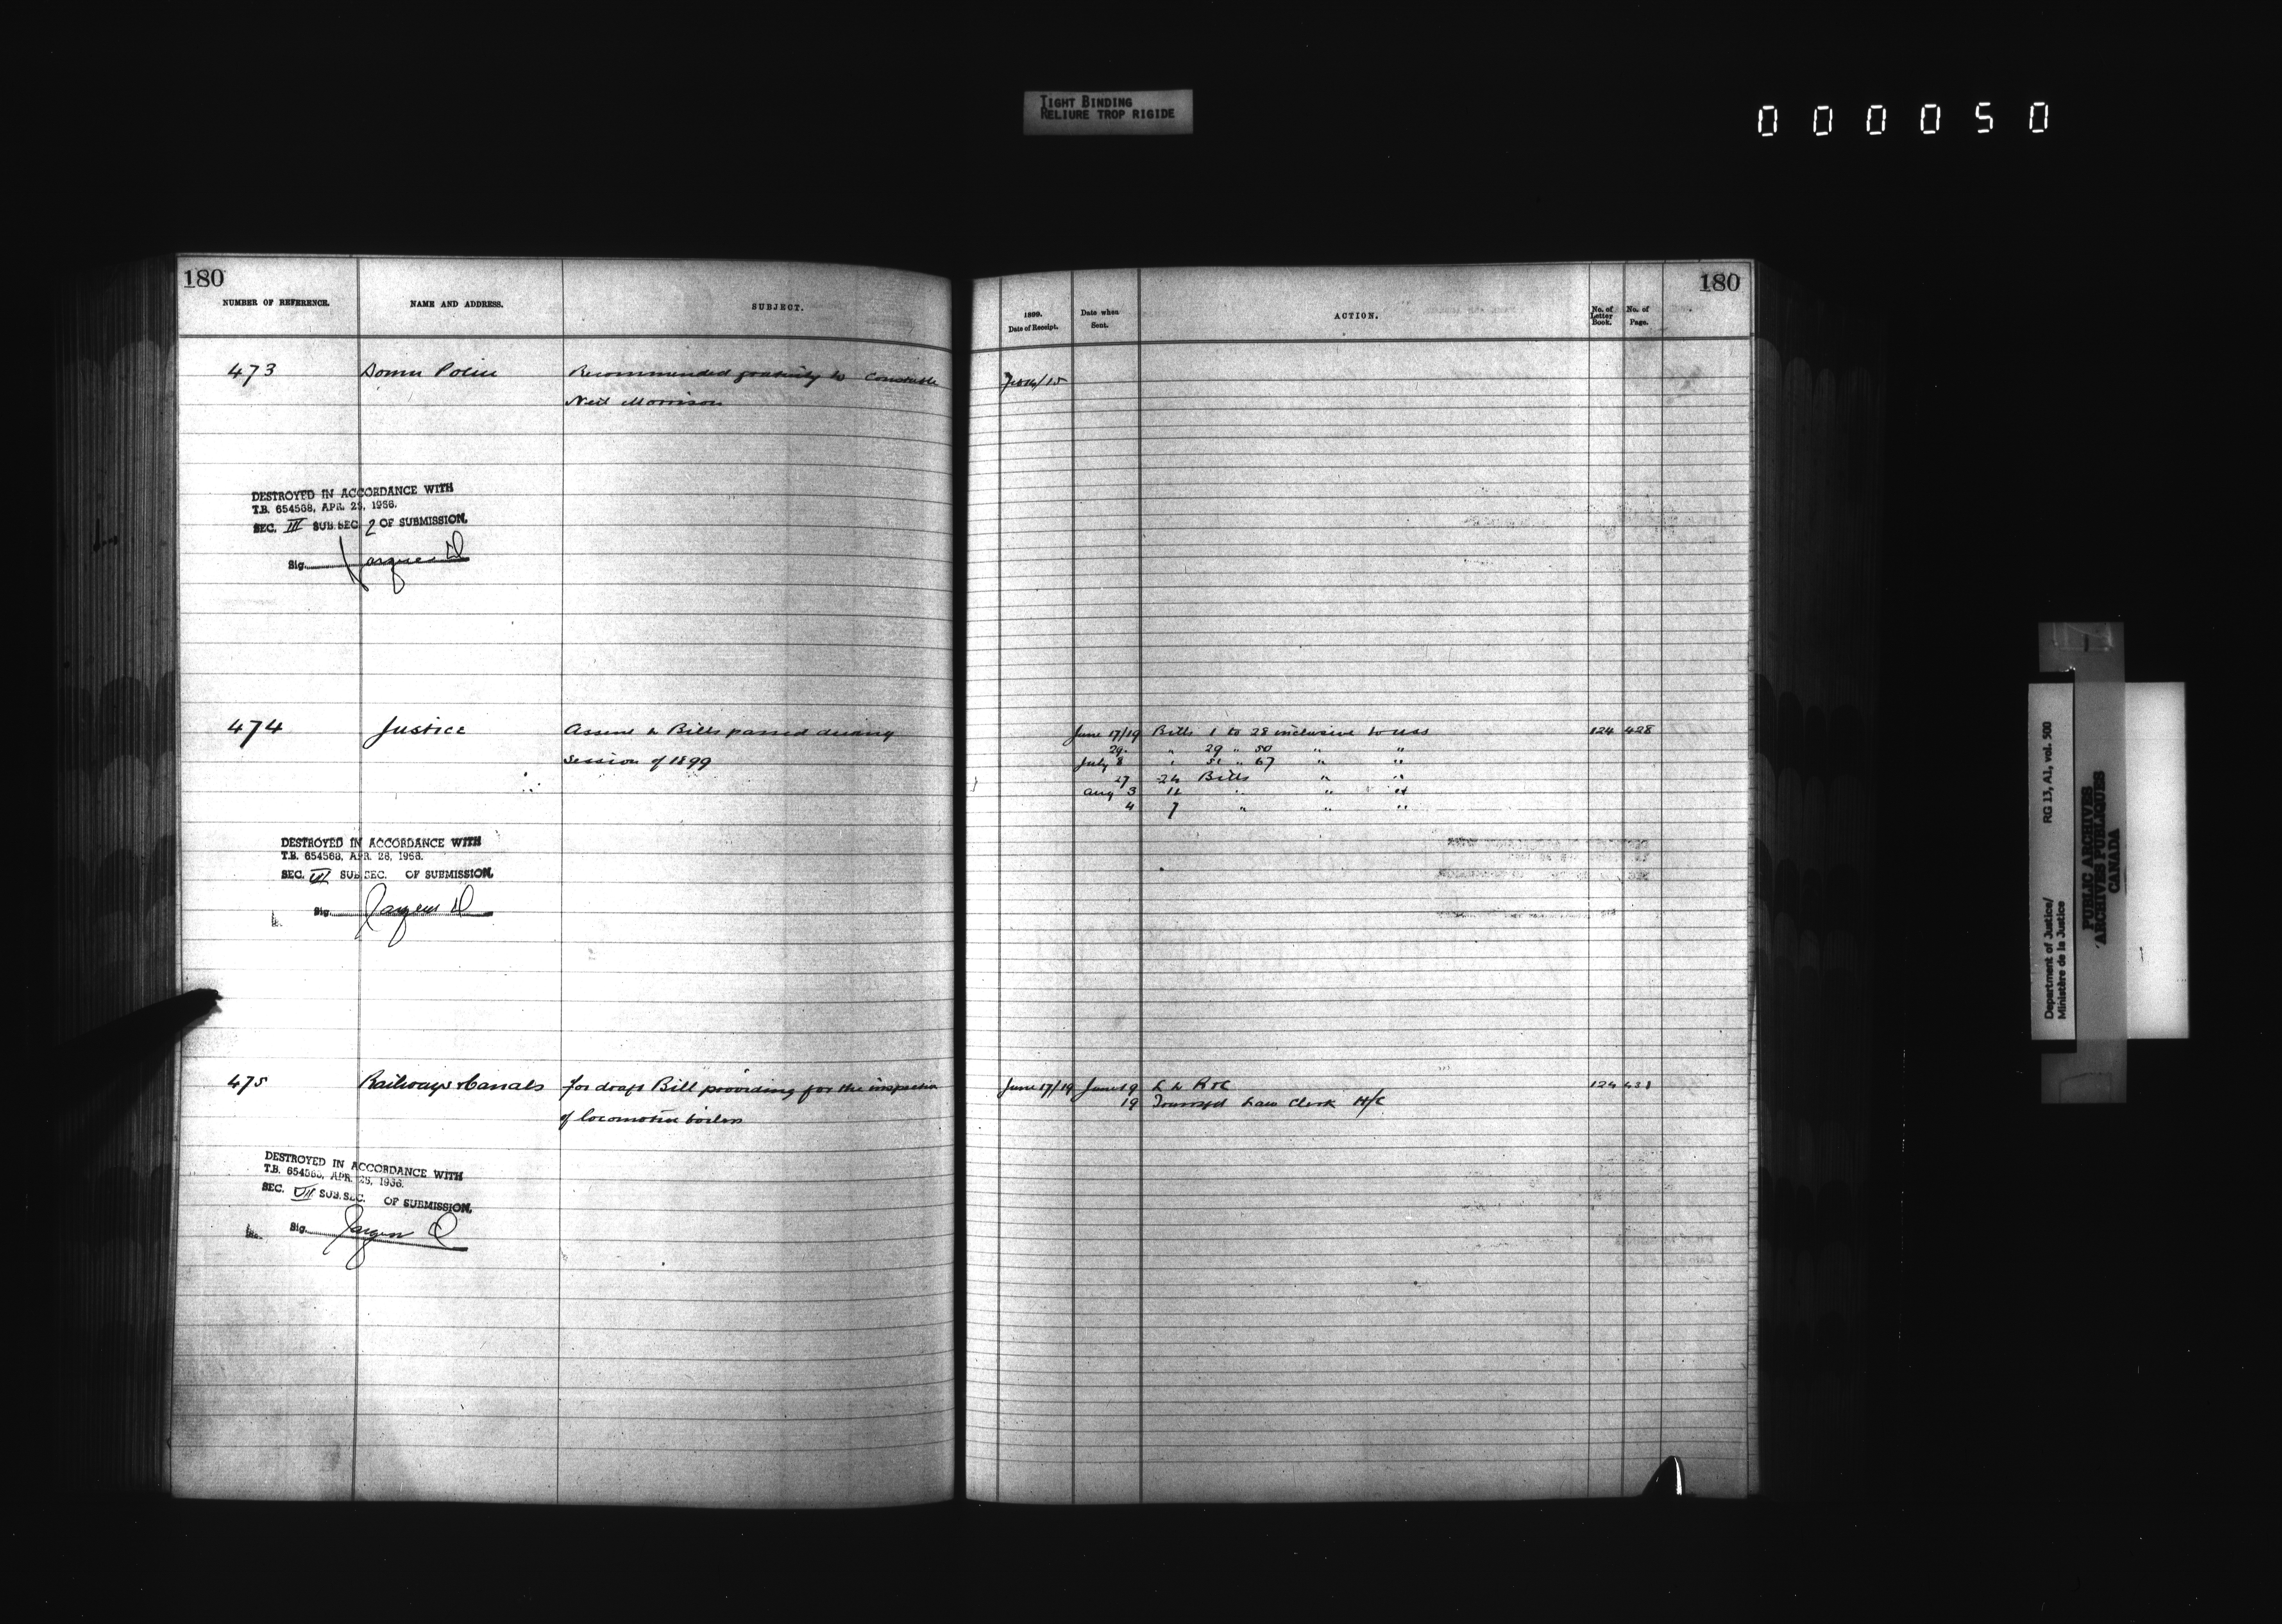 TIGHT BINDING
RELIURE TROP RIGIDE
000050
180
NUMBER OF REFERENCE.
NAME AND ADDRESS.
SUBJECT.
473
Domn Police
Recommended gratuity to Constable
Neil Morrison
DESTROYED IN ACCORDANCE WITH
T.B. 654568, APR. 26, 1956.
SEC. III SUB. SEC. 2 OF SUBMISSION.
Sig.
474
Justice
Assent to Bills passed during
Session of 1899
DESTROYED IN ACCORDANCE WITH
T.B. 654568, APR. 26, 1956.
SEC. VII SUB. SEC. OF SUBMISSION.
Sig.
475
Railways & Canals
for draft Bill providing for the inspection
of locomotive boilers
DESTROYED IN ACCORDANCE WITH
T.B. 654568, APR. 26, 1956.
SEC. VII SUB. SEC. OF SUBMISSION.
Sig.
180
1899.
Date of Receipt.
Date when
Sent.
ACTION.
No. of
Letter
Book.
No. of
Page.
June 17/19 Bills 1 to 28 inclusive to 124 428
29. " 29 " 50 " "
July 8 " 51 " 67 " "
27 24 Bills " "
Aug 3 11 " " "
4 7 " " "
June 17/19 June 19 L to R & C 124 431
19 Law Clerk H/C
Department of Justice/
Ministère de la Justice
RG 13, A1, vol. 500
PUBLIC ARCHIVES
ARCHIVES PUBLIQUES
CANADA